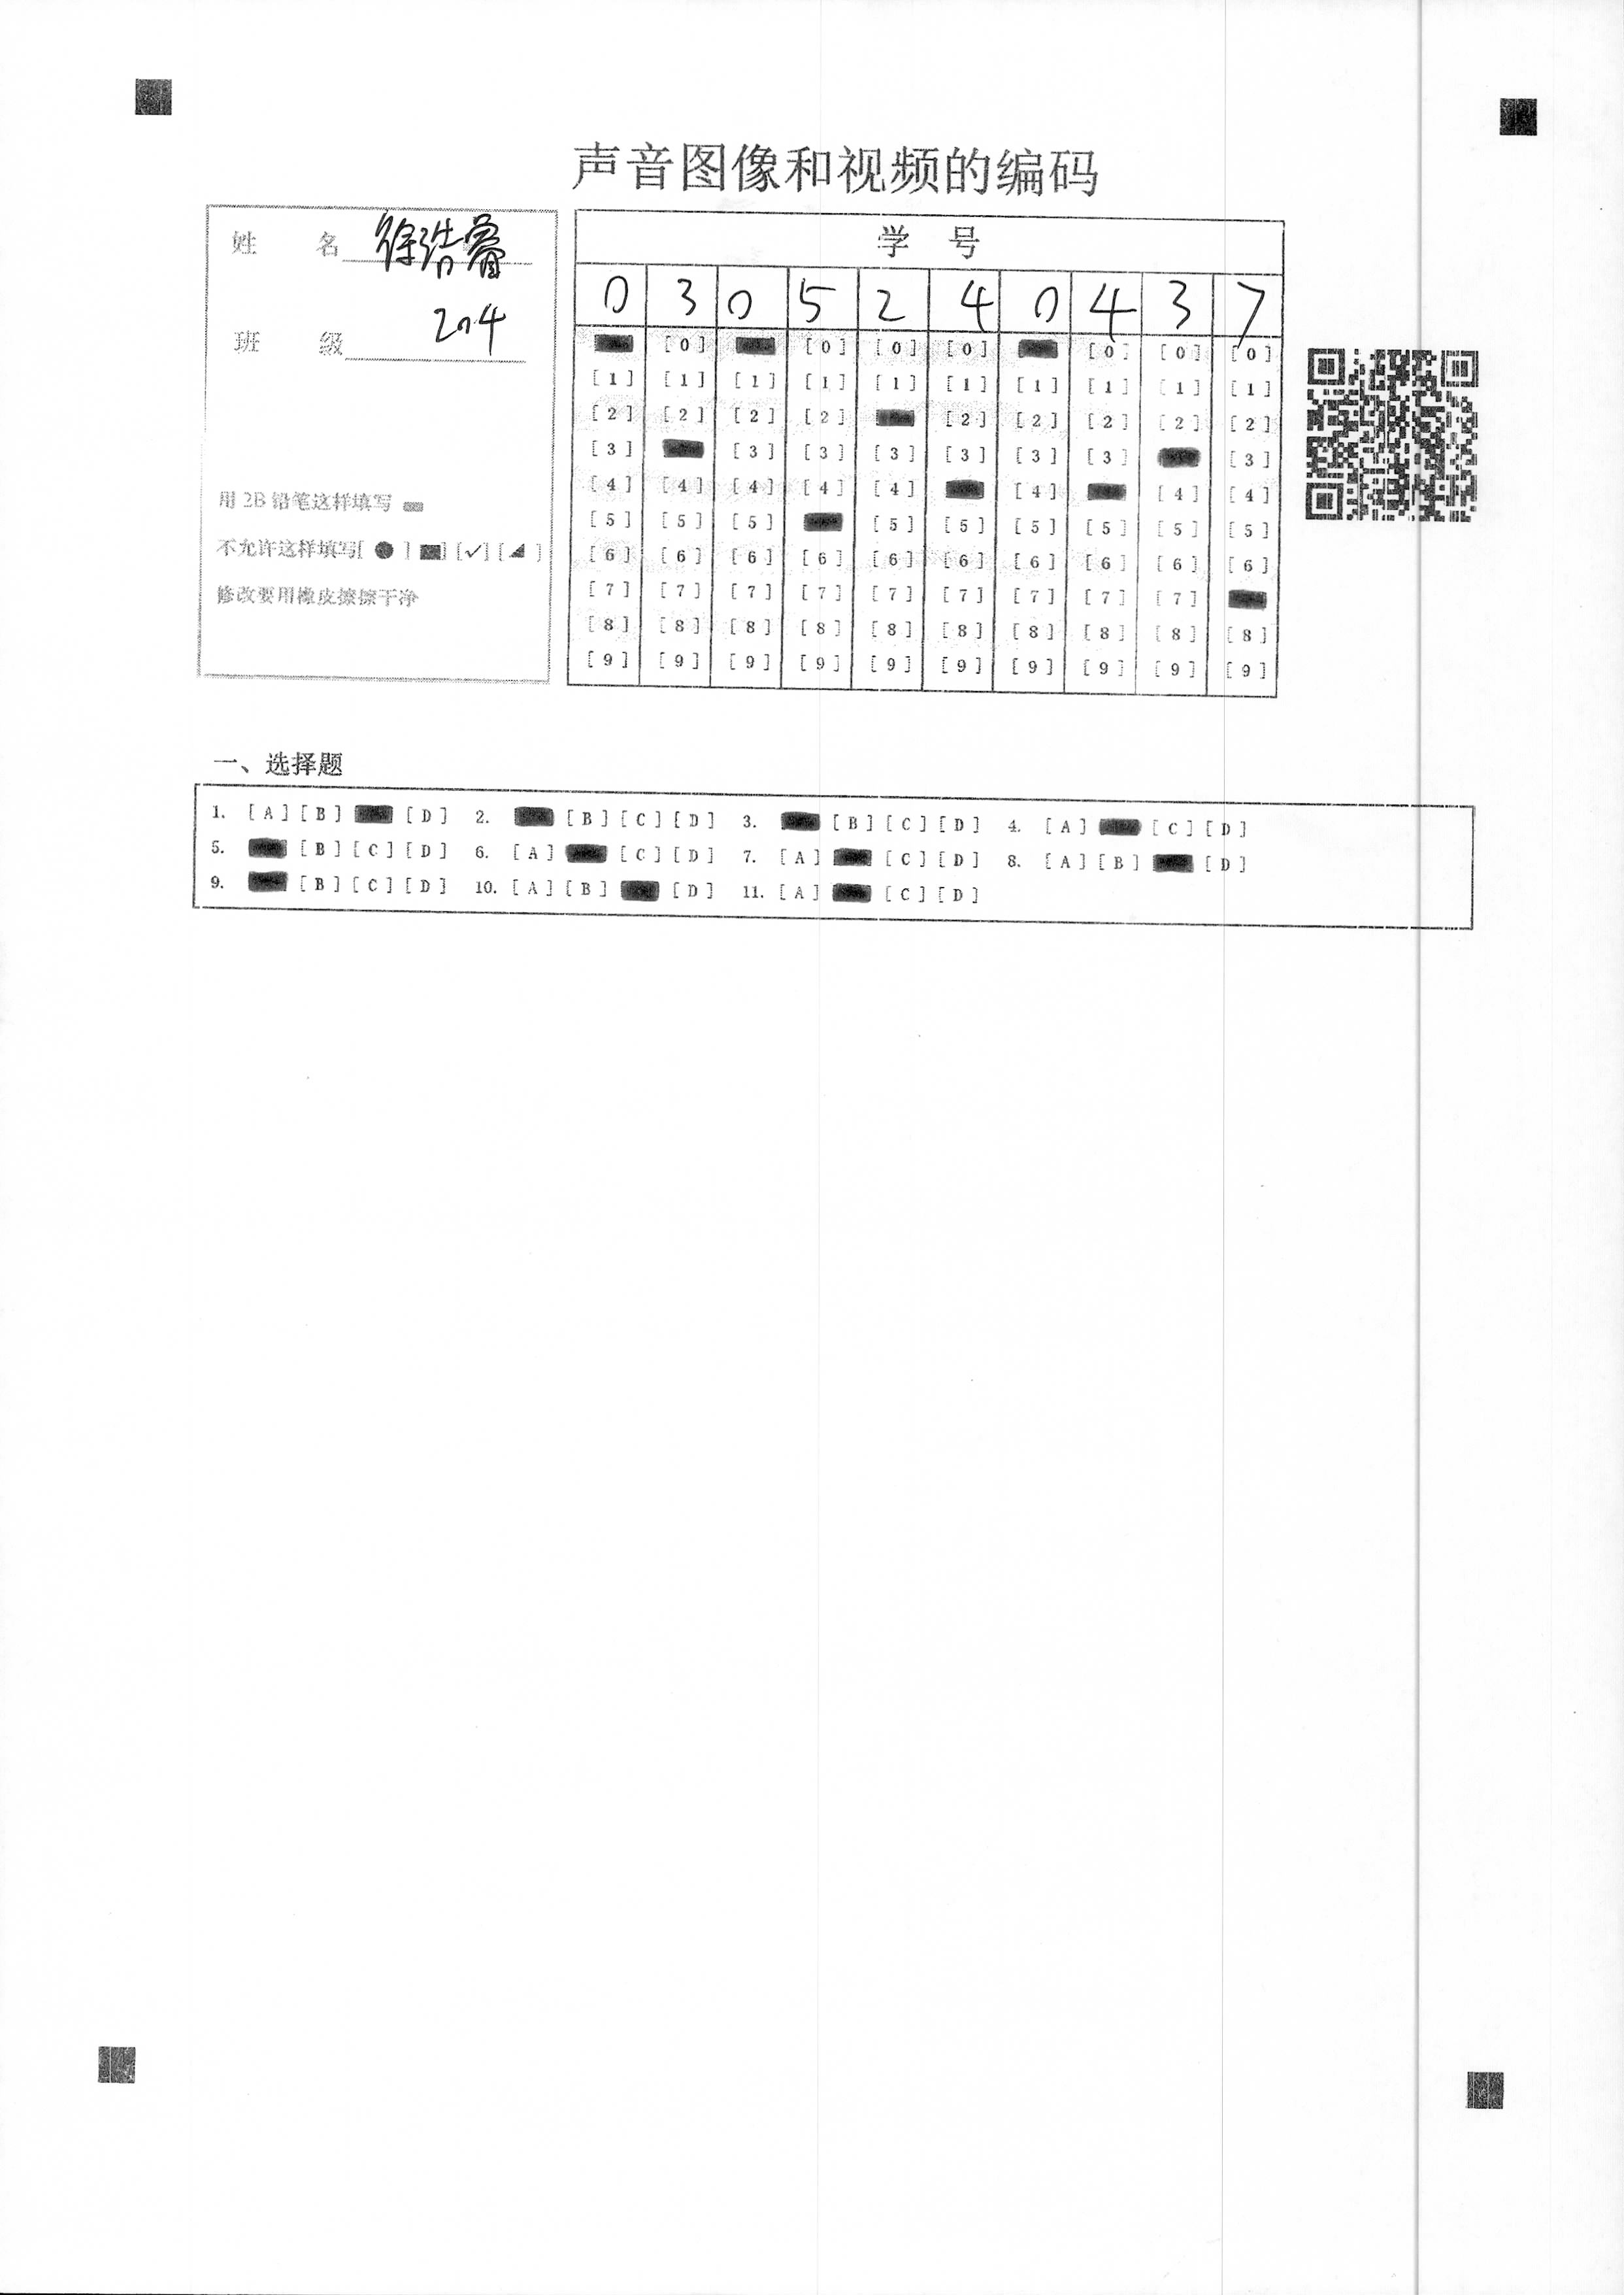 声音图像和视频的编码
姓 名 徐浩睿
班 级 204
用 2B 铅笔这样填写
不允许这样填写[ ● ] [■] [✓] [◢ ]
修改要用橡皮擦擦干净
学 号
0 3 0 5 2 4 0 4 3 7
[0] [0] [0] [0] [0] [0] [0]
[1] [1] [1] [1] [1] [1] [1] [1] [1] [1]
[2] [2] [2] [2] [2] [2] [2] [2] [2]
[3] [3] [3] [3] [3] [3] [3] [3]
[4] [4] [4] [4] [4] [4] [4] [4]
[5] [5] [5] [5] [5] [5] [5] [5] [5]
[6] [6] [6] [6] [6] [6] [6] [6] [6] [6]
[7] [7] [7] [7] [7] [7] [7] [7] [7]
[8] [8] [8] [8] [8] [8] [8] [8] [8] [8]
[9] [9] [9] [9] [9] [9] [9] [9] [9] [9]
一、选择题
1. [A] [B] [D] 2. [B] [C] [D] 3. [B] [C] [D] 4. [A] [C] [D]
5. [B] [C] [D] 6. [A] [C] [D] 7. [A] [C] [D] 8. [A] [B] [D]
9. [B] [C] [D] 10. [A] [B] [D] 11. [A] [C] [D]